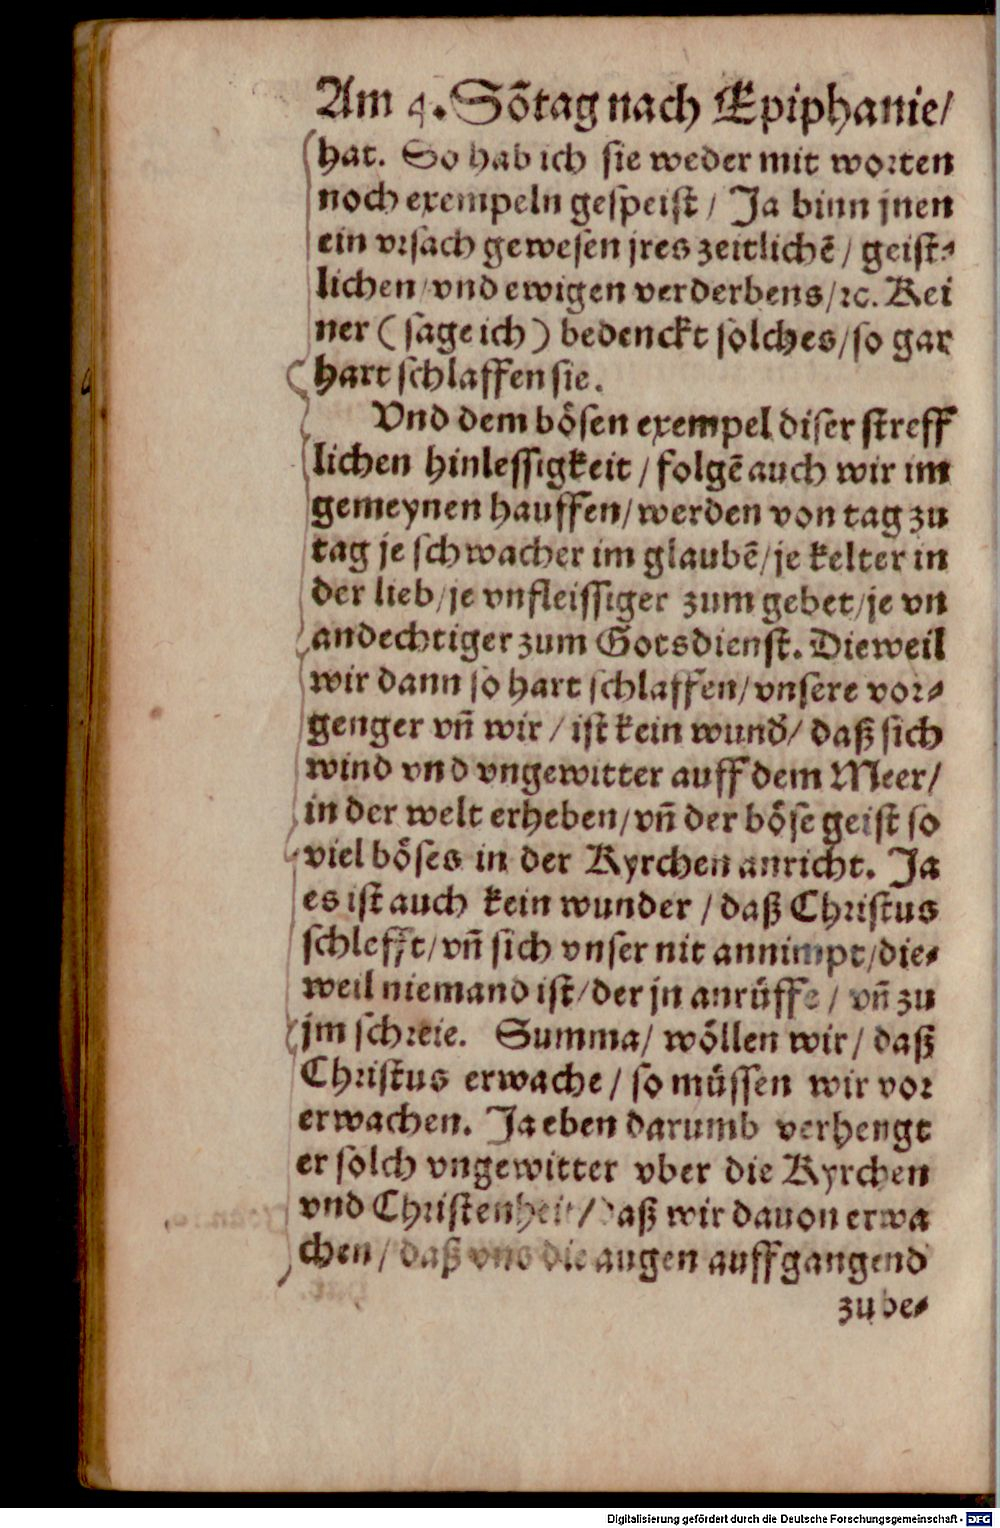 Am 4. Sõtag nach Epiphanie/
hat. So hab ich sie weder mit worten
noch exempeln gespeist / Ja binn jnen
ein vrsach gewesen jres zeitlichẽ / geist⸗
lichen / vnd ewigen verderbens / ꝛc. Kei
ner ( sage ich ) bedenckt solches / so gar
hart schlaffen sie.
Vnd dem bösen exempel diser streff
lichen hinlessigkeit / folgẽ auch wir im
gemeynen hauffen / werden von tag zu
tag je schwacher im glaubẽ / je kelter in
der lieb / je vnfleissiger zum gebet / je vn
andechtiger zum Gotsdienst. Dieweil
wir dann so hart schlaffen / vnsere vor⸗
genger vñ wir / ist kein wund' / daß sich
wind vnd vngewitter auff dem Meer /
in der welt erheben / vñ der böse geist so
viel böses in der Kyrchen anricht. Ja
es ist auch kein wunder / daß Christus
schlefft / vñ sich vnser nit annimpt / die⸗
weil niemand ist / der jn anrüffe / vñ zu
jm schreie. Summa / wöllen wir / daß
Christus erwache / so müssen wir vor
erwachen. Ja eben darumb verhengt
er solch vngewitter vber die Kyrchen
vnd Christenheit / daß wir dauon erwa
chen / daß vns die augen auffgangend
zu be⸗
Digitalisierung gefördert durch die Deutsche Forschungsgemeinschaft - DFG